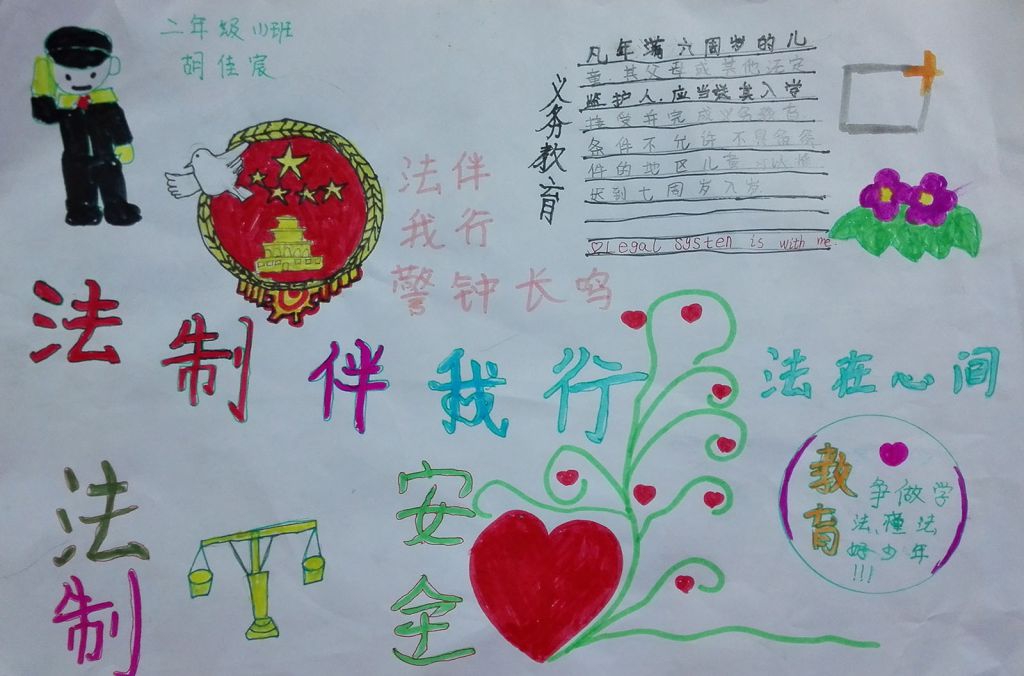 二年级(1)班
胡佳宸
义务教育
凡年满六周岁的儿
童,其父母或其他法定
监护人,应当送其入学
接受并完成义务教育
条件不允许不具备条
件的地区儿童可以推
迟到七周岁入学
Legal systen is with me.
法伴
我行
警钟长鸣
法制伴我行
法在心间
法制
安全
教育
争做学
法,懂法
好少年
!!!